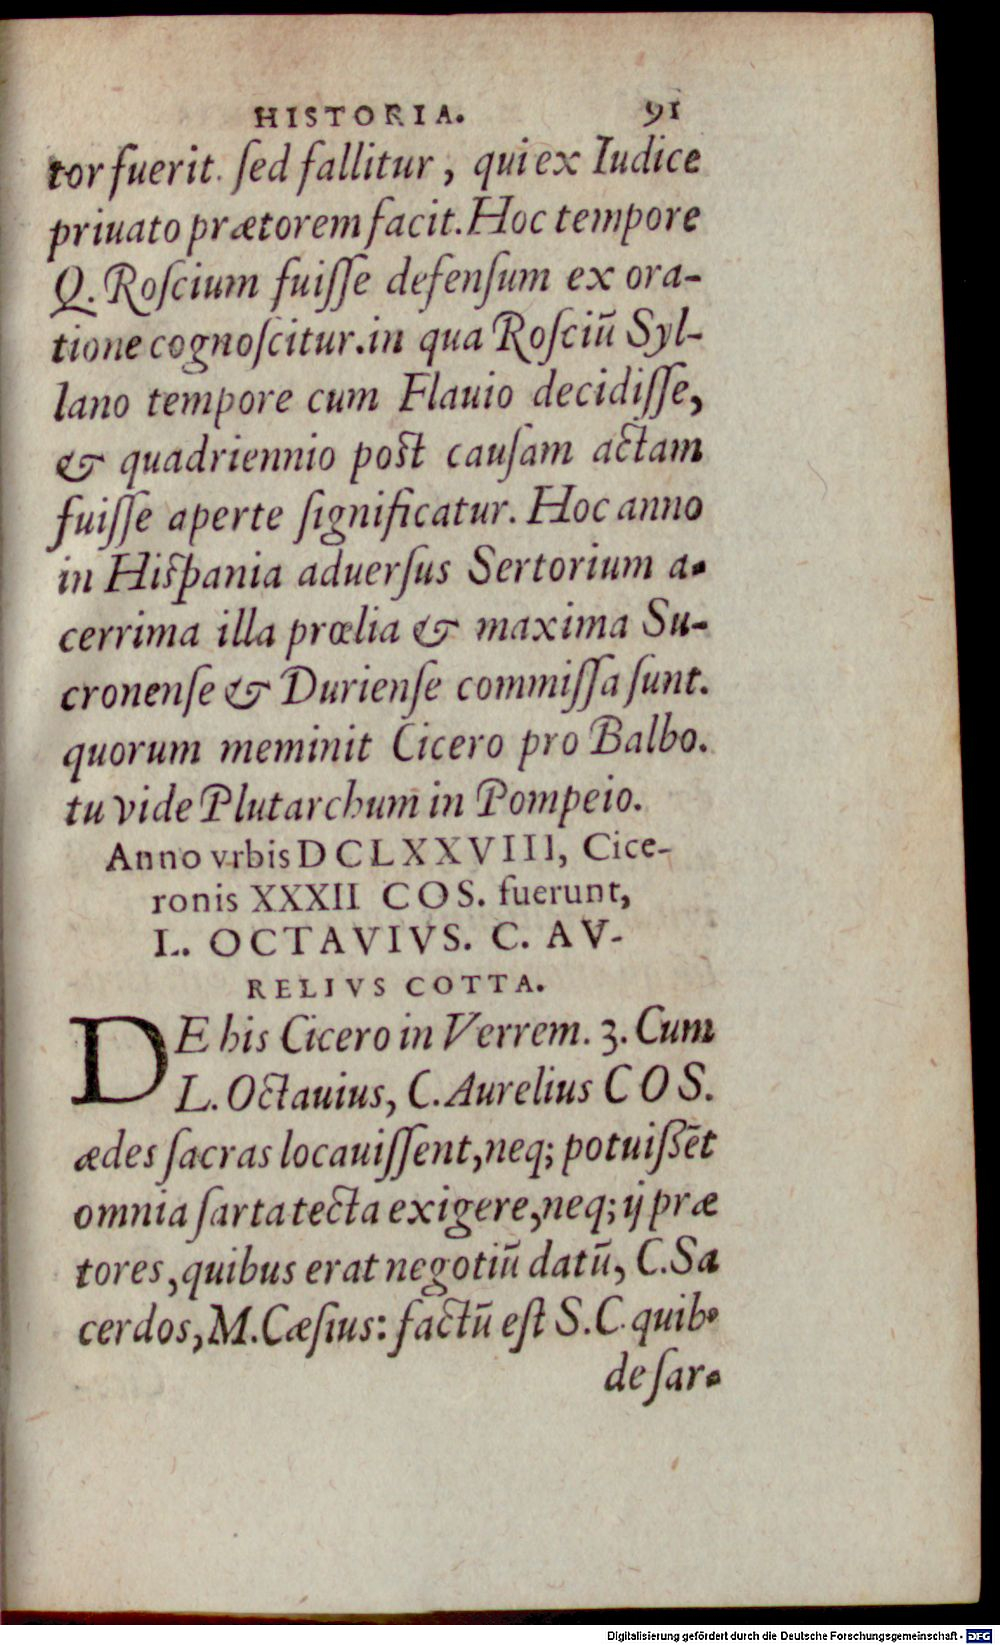 HISTORIA. 91
tor fuerit. ſed fallitur, qui ex Iudice
priuato prætorem facit. Hoc tempore
Q. Roſcium fuiſſe defenſum ex ora-
tione cognoſcitur. in qua Roſciū Syl-
lano tempore cum Flauio decidiſſe,
& quadriennio poſt cauſam actam
fuiſſe aperte ſignificatur. Hoc anno
in Hiſpania aduerſus Sertorium a-
cerrima illa prœlia & maxima Su-
cronenſe & Durienſe commiſſa ſunt.
quorum meminit Cicero pro Balbo.
tu vide Plutarchum in Pompeio.
Anno vrbis DCLXXVIII, Cice-
ronis XXXII COS. fuerunt,
L. OCTAVIVS. C. AV-
RELIVS COTTA.
DE his Cicero in Verrem. 3. Cum
L. Octauius, C. Aurelius COS.
ædes ſacras locauiſſent, neq; potuiſſēt
omnia ſarta tecta exigere, neq; ij præ
tores, quibus erat negotiū datū, C. Sa
cerdos, M. Cæſius: factū eſt S. C. quib·
de ſar-
Digitalisierung gefördert durch die Deutsche Forschungsgemeinschaft - DFG